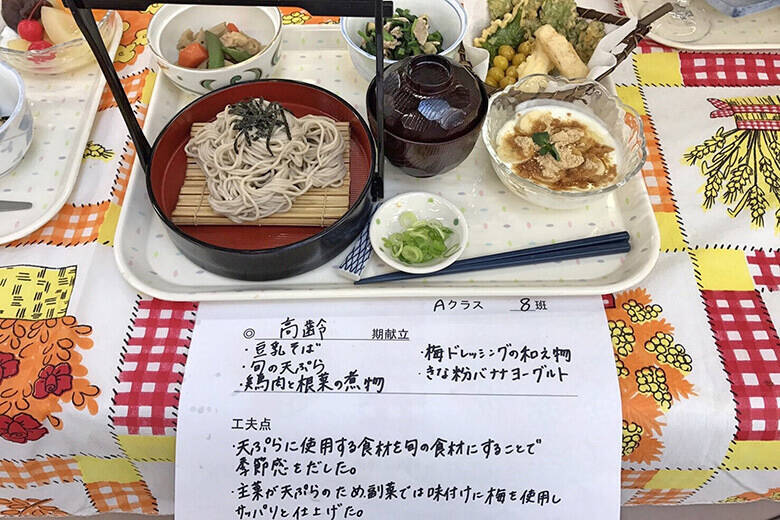 Aクラス 8班
◎ 高齢 期献立
・豆乳そば
・旬の天ぷら
・鶏肉と根菜の煮物
・梅ドレッシングの和え物
・きな粉バナナヨーグルト
工夫点
・天ぷらに使用する食材を旬の食材にすることで
季節感をだした。
・主菜が天ぷらのため、副菜では味付けに梅を使用し
サッパリと仕上げた。